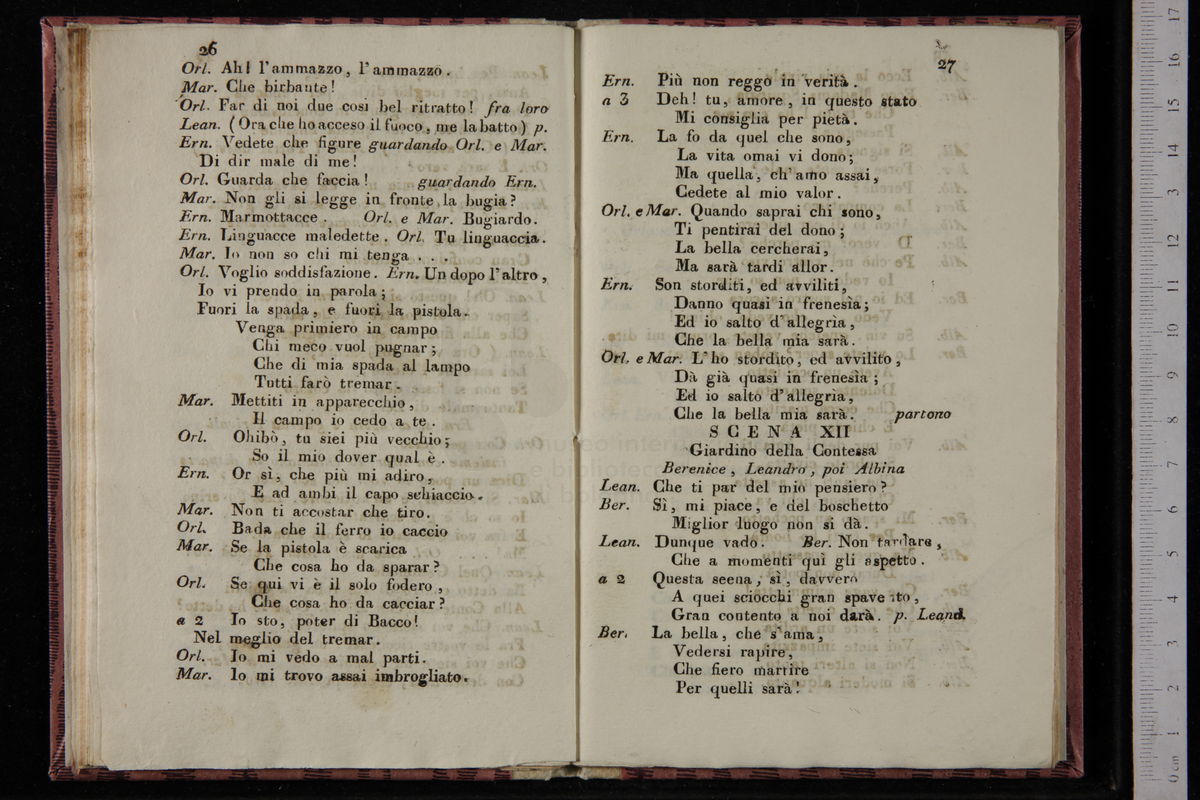 26
Orl. Ah! l'ammazzo, l'ammazzo.
Mar. Che birbante!
Orl. Far di noi due così bel ritratto! fra loro
Lean. (Ora che ho acceso il fuoco, me la batto) p.
Ern. Vedete che figure guardando Orl. e Mar.
Di dir male di me!
Orl. Guarda che faccia! guardando Ern.
Mar. Non gli si legge in fronte la bugia?
Ern. Marmottacce. Orl. e Mar. Bugiardo.
Ern. Linguacce maledette. Orl. Tu linguaccia.
Mar. Io non so chi mi tenga . . .
Orl. Voglio soddisfazione. Ern. Un dopo l'altro,
Io vi prendo in parola;
Fuori la spada, e fuori la pistola.
Venga primiero in campo
Chi meco vuol pugnar;
Che di mia spada al lampo
Tutti farò tremar.
Mar. Mettiti in apparecchio,
Il campo io cedo a te.
Orl. Ohibò, tu siei più vecchio;
So il mio dover qual è.
Ern. Or sì, che più mi adiro,
E ad ambi il capo schiaccio.
Mar. Non ti accostar che tiro.
Orl. Bada che il ferro io caccio
Mar. Se la pistola è scarica
Che cosa ho da sparar?
Orl. Se qui vi è il solo fodero,
Che cosa ho da cacciar?
a 2 Io sto, poter di Bacco!
Nel meglio del tremar.
Orl. Io mi vedo a mal parti.
Mar. Io mi trovo assai imbrogliato.
27
Ern. Più non reggo in verità.
a 3 Deh! tu, amore, in questo stato
Mi consiglia per pietà.
Ern. La fo da quel che sono,
La vita omai vi dono;
Ma quella, ch'amo assai,
Cedete al mio valor.
Orl. e Mar. Quando saprai chi sono,
Ti pentirai del dono;
La bella cercherai,
Ma sarà tardi allor.
Ern. Son storditi, ed avviliti,
Danno quasi in frenesìa;
Ed io salto d'allegrìa,
Che la bella mia sarà.
Orl. e Mar. L'ho stordito, ed avvilito,
Dà già quasi in frenesìa;
Ed io salto d'allegrìa,
Che la bella mia sarà. partono
SCENA XII
Giardino della Contessa
Berenice, Leandro, poi Albina
Lean. Che ti par del mio pensiero?
Ber. Sì, mi piace, e del boschetto
Miglior luogo non si dà.
Lean. Dunque vado. Ber. Non tardare,
Che a momenti quì gli aspetto.
a 2 Questa scena, sì, davvero
A quei sciocchi gran spavento,
Gran contento a noi darà. p. Leand.
Ber. La bella, che s'ama,
Vedersi rapire,
Che fiero martire
Per quelli sarà!